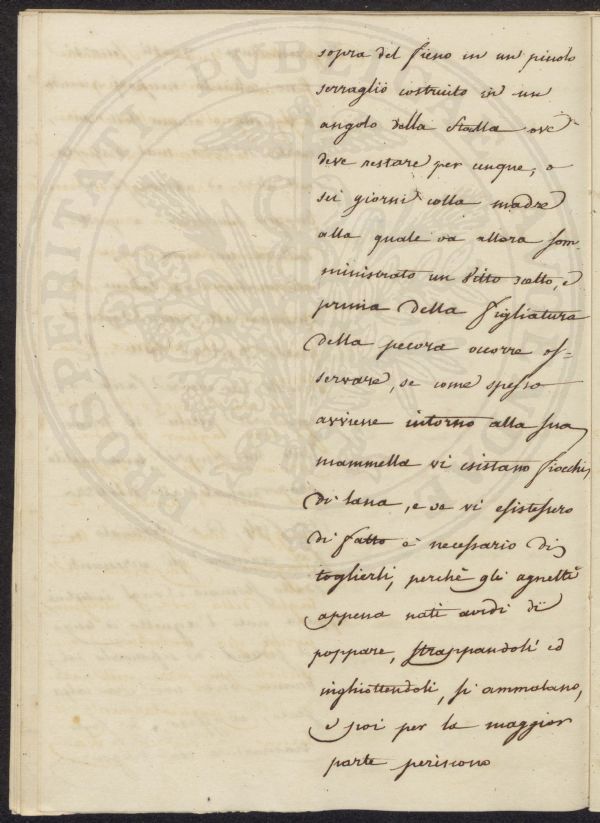 sopra del fieno in un picolo
serraglio costruito in un
angolo della Stalla ove
deve restare per cinque, o
sei giorni colla madre
alla quale va allora som-
ministrato un Vitto scelto, e
prima della figliatura
della pecora occorre os-
servare, se come spesso
avviene intorno alla sua
mammella vi esistano fiocchi
di lana, e se vi esistessero
di fatto è necessario di
toglierli, perchè gli agnelli
appena nati avidi di
poppare, strappandoli ed
inghiottendoli, si ammalano,
e poi per la maggior
parte periscono
PROSPERITATI PUBLICAE